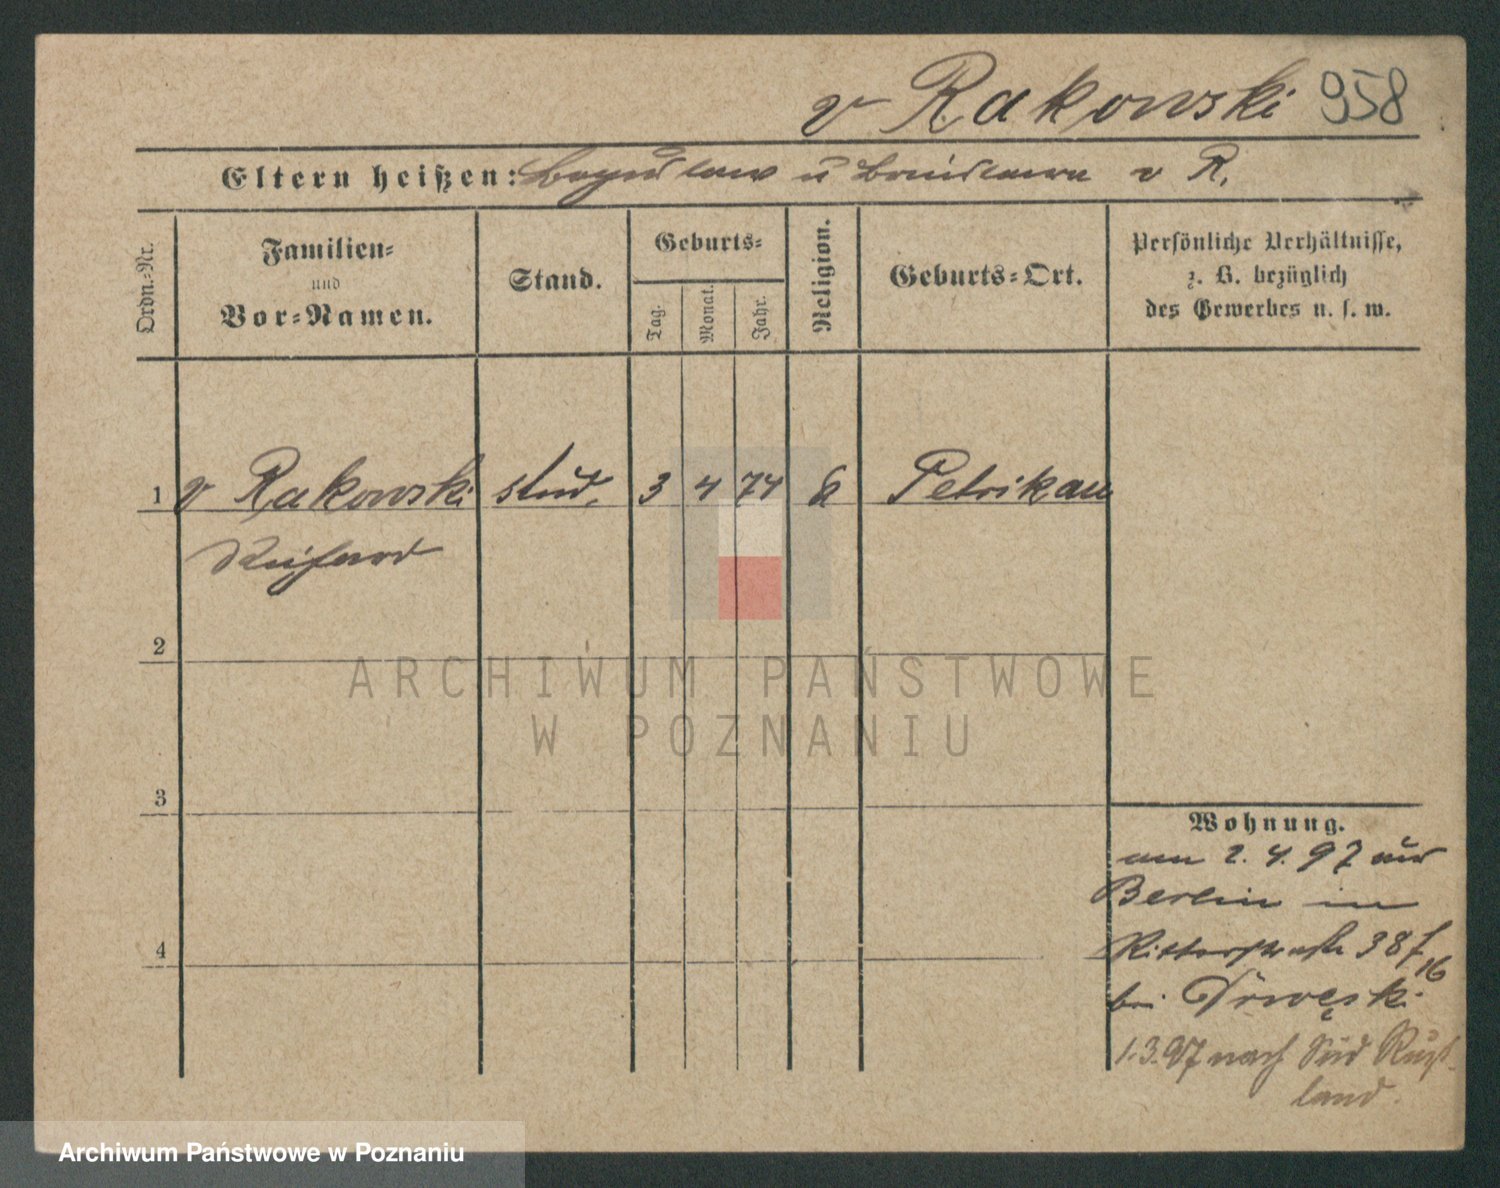 v Rakowski 958
Eltern heißen: Boguslaw u Bronislawa v R.
Ordn.-Nr.
Familien-
und
Vor-Namen.
Stand.
Geburts-
Tag.
Monat.
Jahr.
Religion.
Geburts-Ort.
Persönliche Verhältnisse,
z. B. bezüglich
des Gewerbes u. s. w.
1 v Rakowski stud. 3 4 74 k Petrikau
Richard
2
3
4
Wohnung.
am 2. 4. 97 aus
Berlin in
Ritterstraße 38
16
bei Drwęski
1.3.97 nach Süd Ruß-
land.
ARCHIWUM PAŃSTWOWE
W POZNANIU
Archiwum Państwowe w Poznaniu